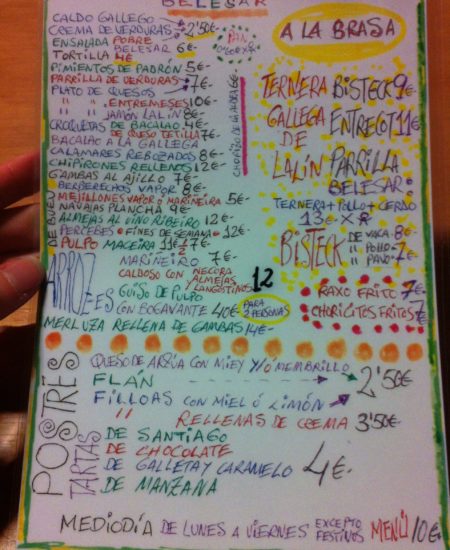 BELESAR
CALDO GALLEGO
CREMA DE VERDURAS 2'50€
ENSALADA POBRE
BELESAR 6€
TORTILLA 4€
PIMIENTOS DE PADRÓN 5€
PARRILLA DE VERDURAS 7€
PLATO DE QUESOS
" " ENTREMESES 10€
" " JAMÓN LALIN 8€
CROQUETAS DE BACALAO 4€
DE QUESO TETILLA 7€
BACALAO A LA GALLEGA
CALAMARES REBOZADOS 8€
CHIPIRONES RELLENOS 12€
GAMBAS AL AJILLO 7€
BERBERECHOS VAPOR 8€
MEJILLONES VAPOR O MARINEIRA 5€
NAVAJAS PLANCHA 9€
ALMEJAS AL VINO RIBEIRO 12€
PERCEBES FINES DE SEMANA 12€
PULPO MACEIRA 11€
PAN
A LA BRASA
TERNERA GALLEGA DE LALIN
BISTECK 9€
ENTRECOT 11€
PARRILLA BELESAR:
TERNERA + POLLO + CERDO
13€ X
BISTECK DE VACA 8€
" POLLO 7€
" PAVO 7€
RAXO FRITO 7€
CHORICITOS FRITOS 7€
ARROZES
MARINEIRO 7€
CALDOSO CON NECORA Y ALMEJAS LANGOSTINOS 12
GUISO DE PULPO
CON BOGAVANTE 40€ PARA 2 PERSONAS
MERLUZA RELLENA DE GAMBAS 14€
POSTRES
QUESO DE ARZÚA CON MIEY Y/Ó MEMBRILLO
FLAN 2'50€
FILLOAS CON MIEL Ó LIMÓN
" RELLENAS DE CREMA 3'50€
TARTAS
DE SANTIAGO
DE CHOCOLATE
DE GALLETA Y CARAMELO 4€
DE MANZANA
MEDIODÍA DE LUNES A VIERNES EXCEPTO FESTIVOS MENÚ 10€